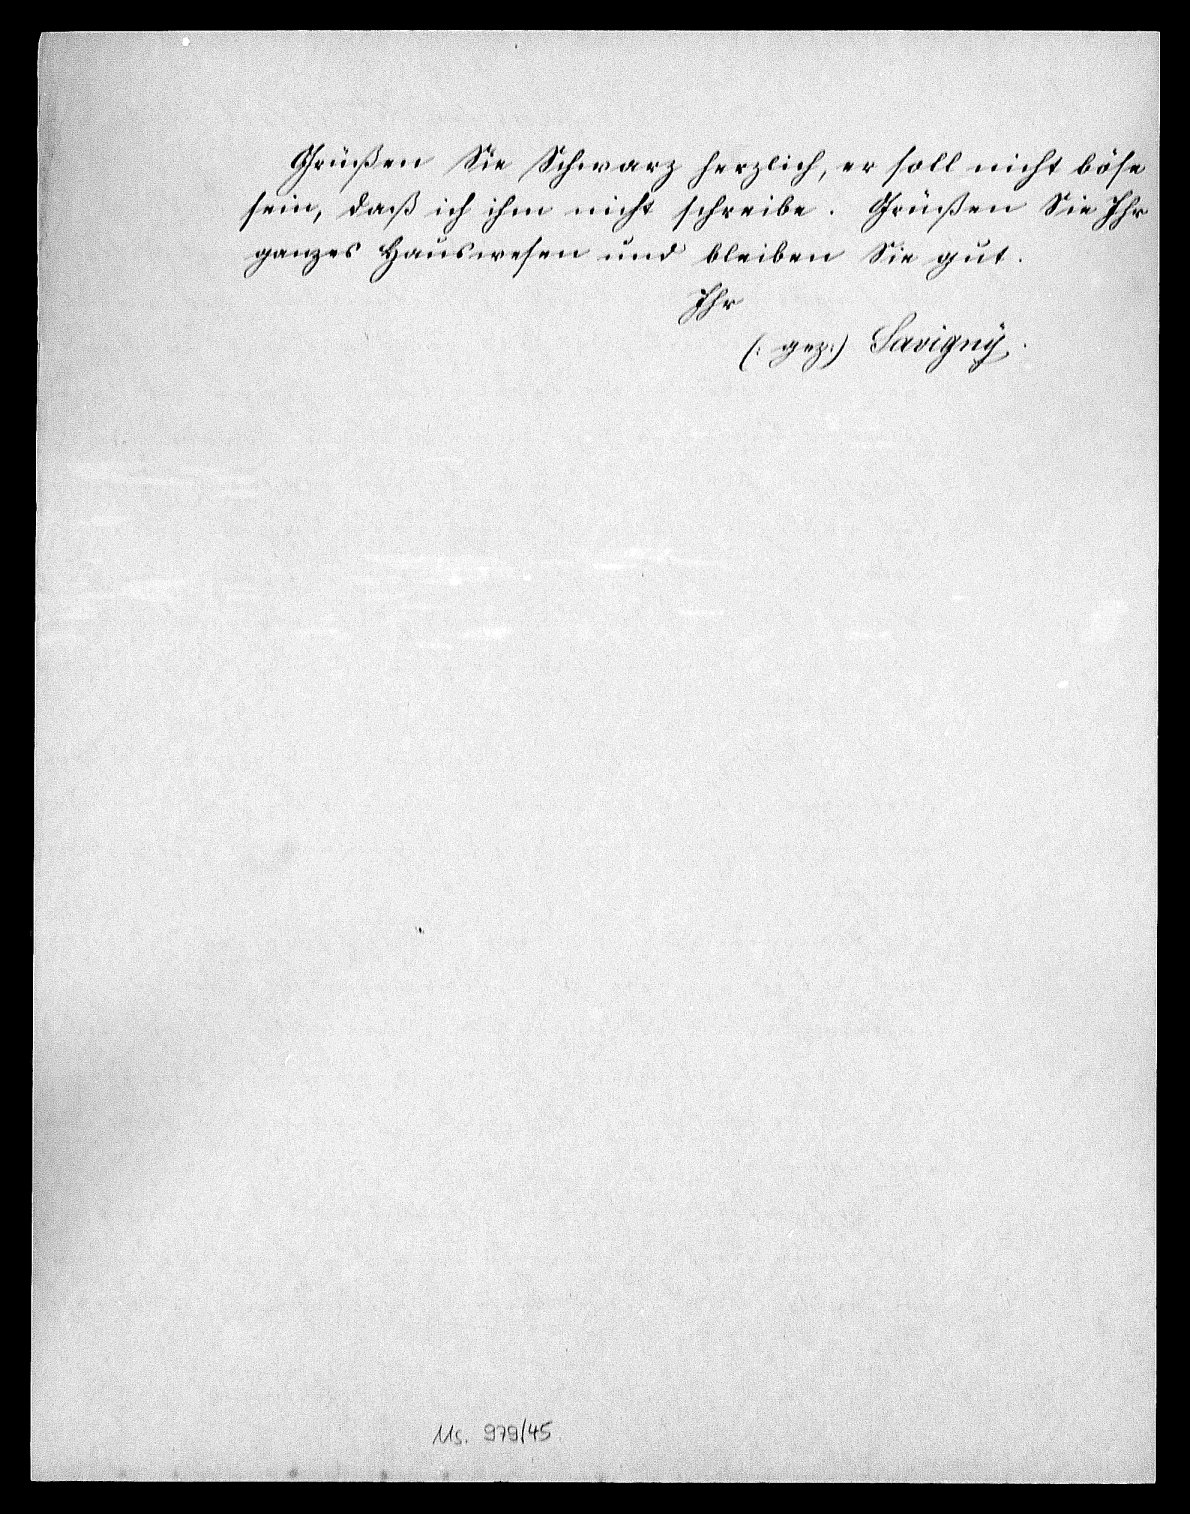 Grüßen Sie Schwarz herzlich, er soll nicht böse
sein, daß ich ihm nicht schreibe. Grüßen Sie Ihr
ganzes Hauswesen und bleiben Sie gut.
Ihr
(: gez:) Savigny.
Ms. 979/45